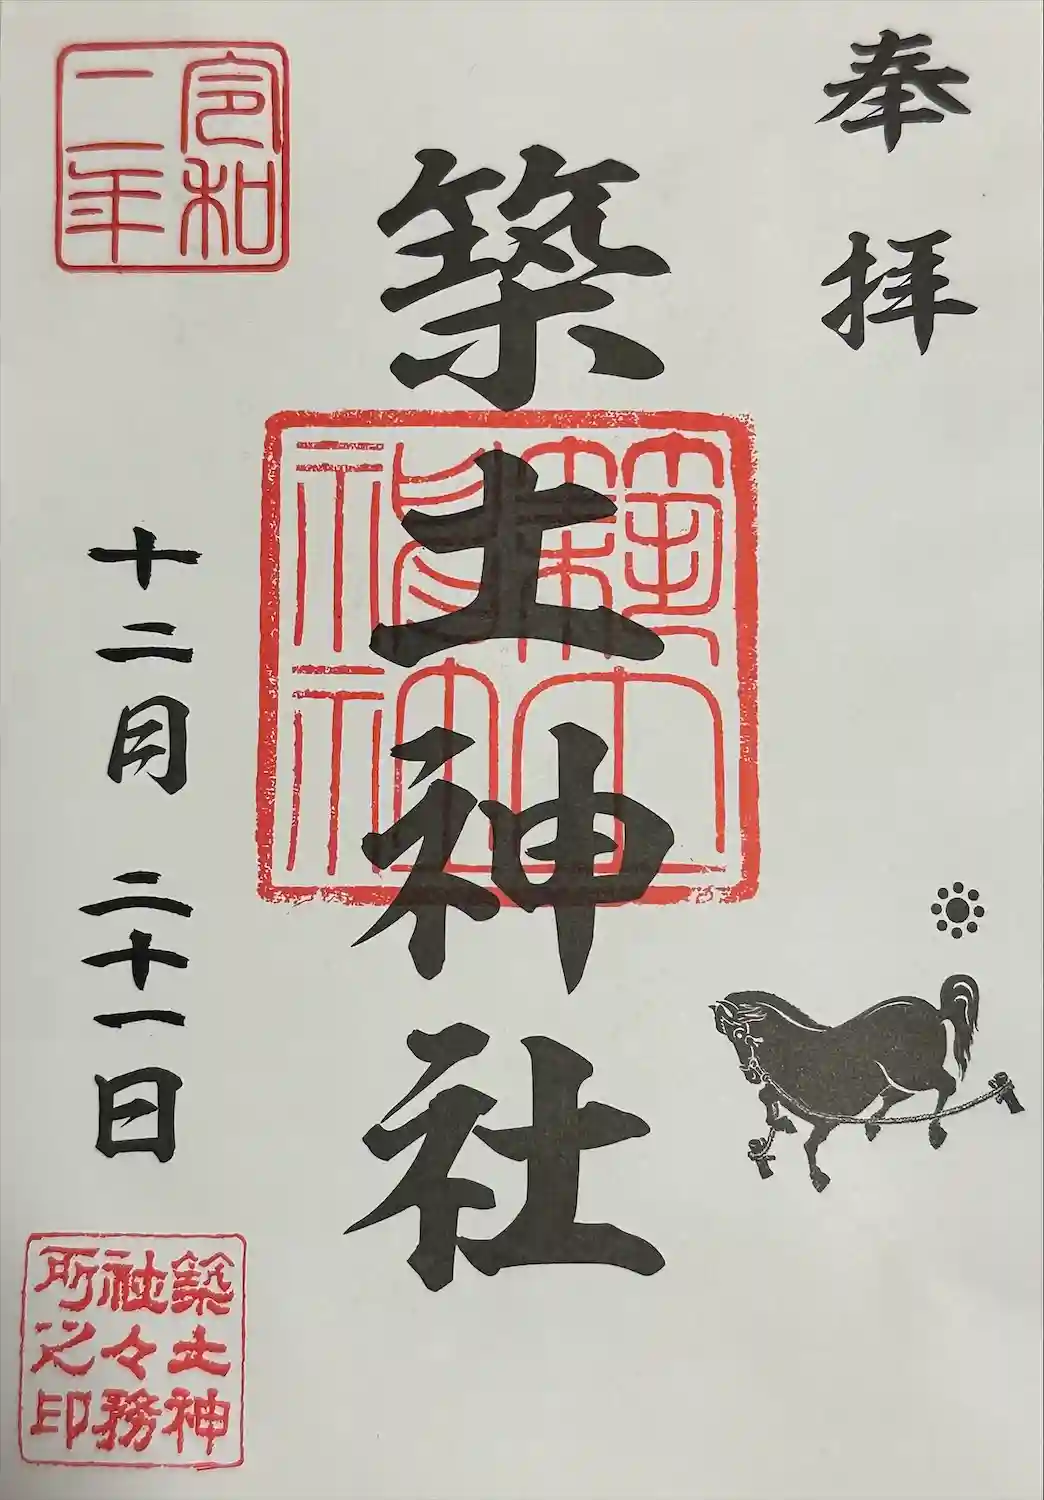 奉拝
築土神社
築土神社
令和
二年
十二月二十一日
築土神
社々務
所之印